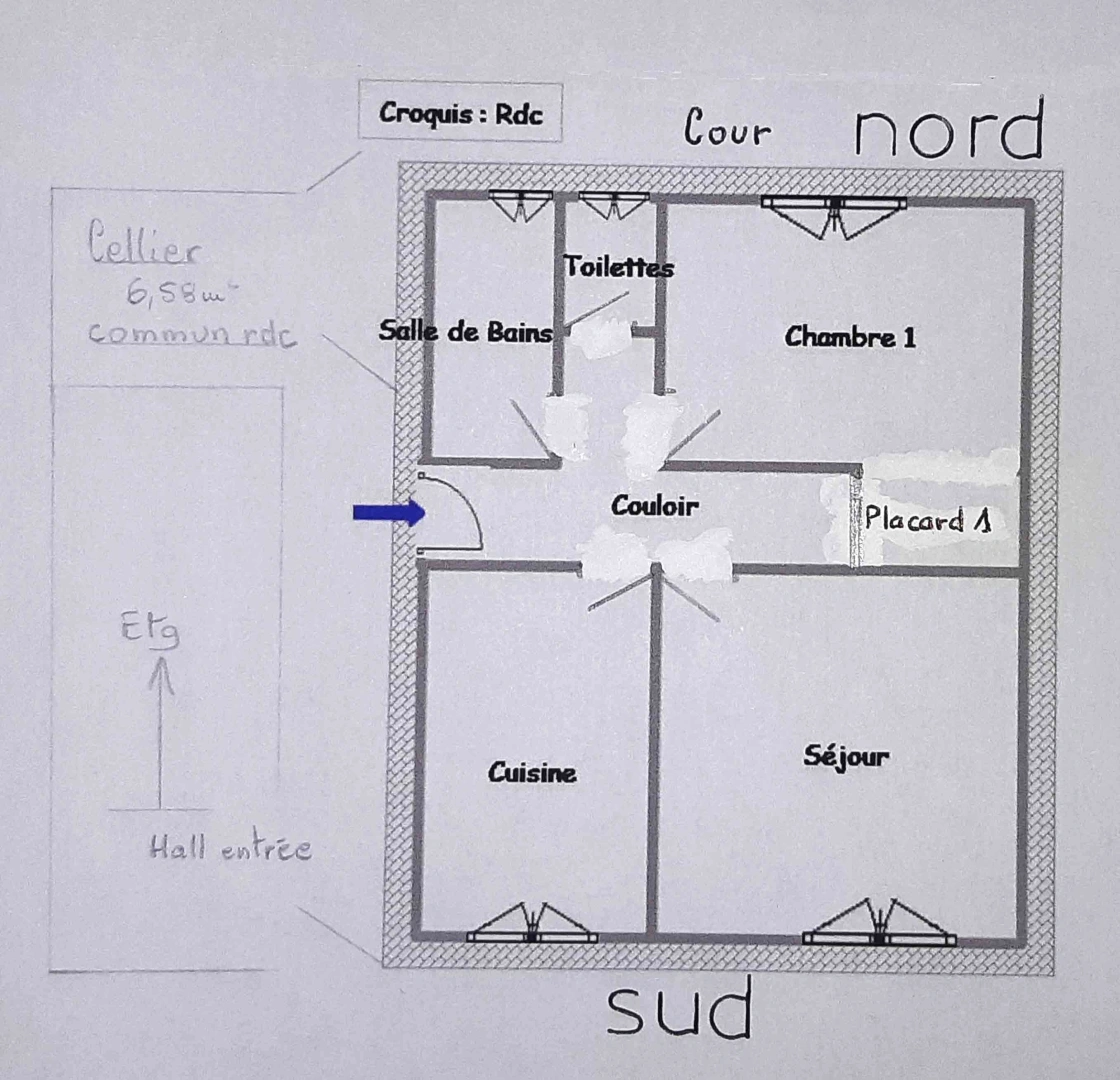 Croquis : Rdc
Cour
nord
Cellier
6,58 m²
commun rdc
Toilettes
Salle de Bains
Chambre 1
Couloir
Placard 1
Etg
Cuisine
Séjour
Hall entrée
sud